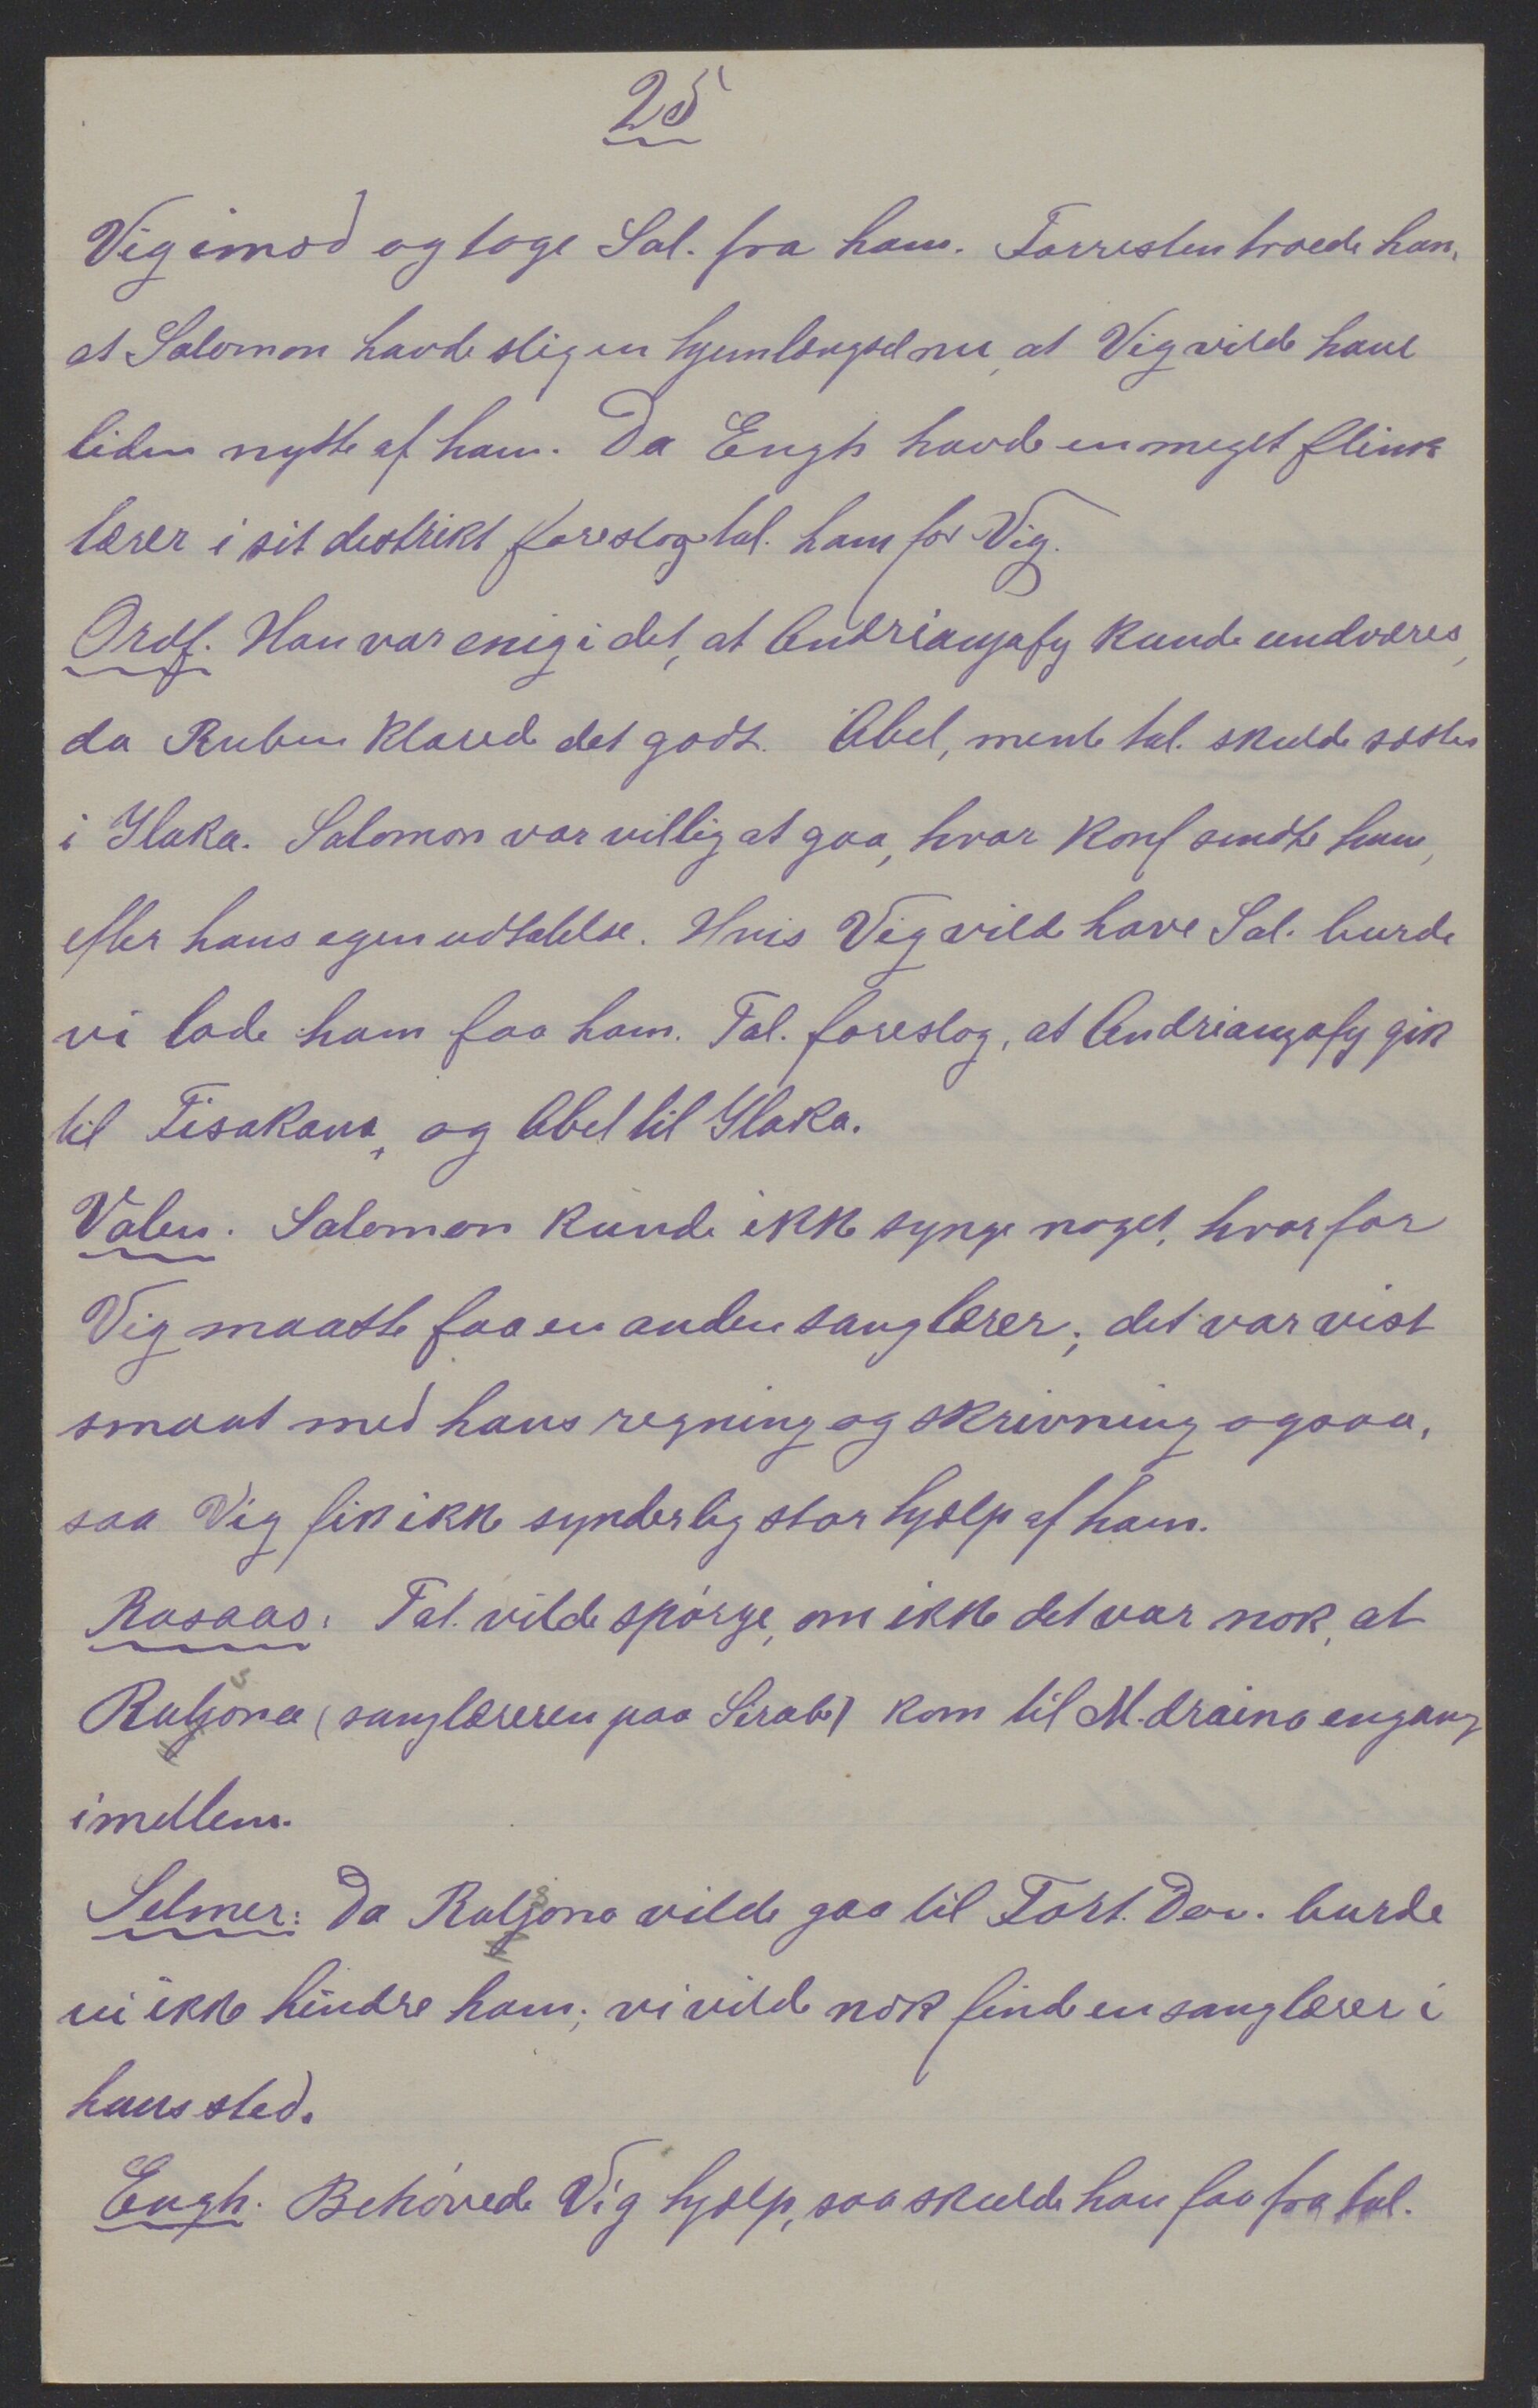 25
Vig imod og toge Sal. fra ham. Forresten troede han,
at Salomon havde slig en hjemlængsel nu, at Vig vilde have
liden nytte af ham. Da Engh havde en meget flink
lærer i sit destrikt foreslog tal. ham for Vig.
Ordf. Han var enig i det, at Andrianjafy kunde undværes,
da Ruben klared det godt. Abel, mente tal. skulde sættes
i Ilaka. Salomon var villig at gaa, hvor Konf sendte ham,
efter hans egen udtalelse. Hvis Vig vilde have Sal. burde
vi lade ham faa ham. Tal. foreslog, at Andrianjafy gik
til Fisakana, og Abel til Ilaka.
Valen. Salomon kunde ikke synge noget, hvorfor
Vig maatte faa en anden sanglærer; det var vist
smaat med hans regning og skrivning ogsaa,
saa Vig fik ikke synderlig stor hjælp af ham.
Rosaas: Tal. vilde spórge, om ikke det var nok, at
(sanglæreren paa Sirabe) kom til M.draina engang
imellem.
Selmer: Da vilde gaa til Fort. Dau. burde
vi ikke hindre ham; vi vilde nok finde en sanglærer i
hans sted.
Engh. Behóvede Vig hjælp, saa skulde han faa fra tal.